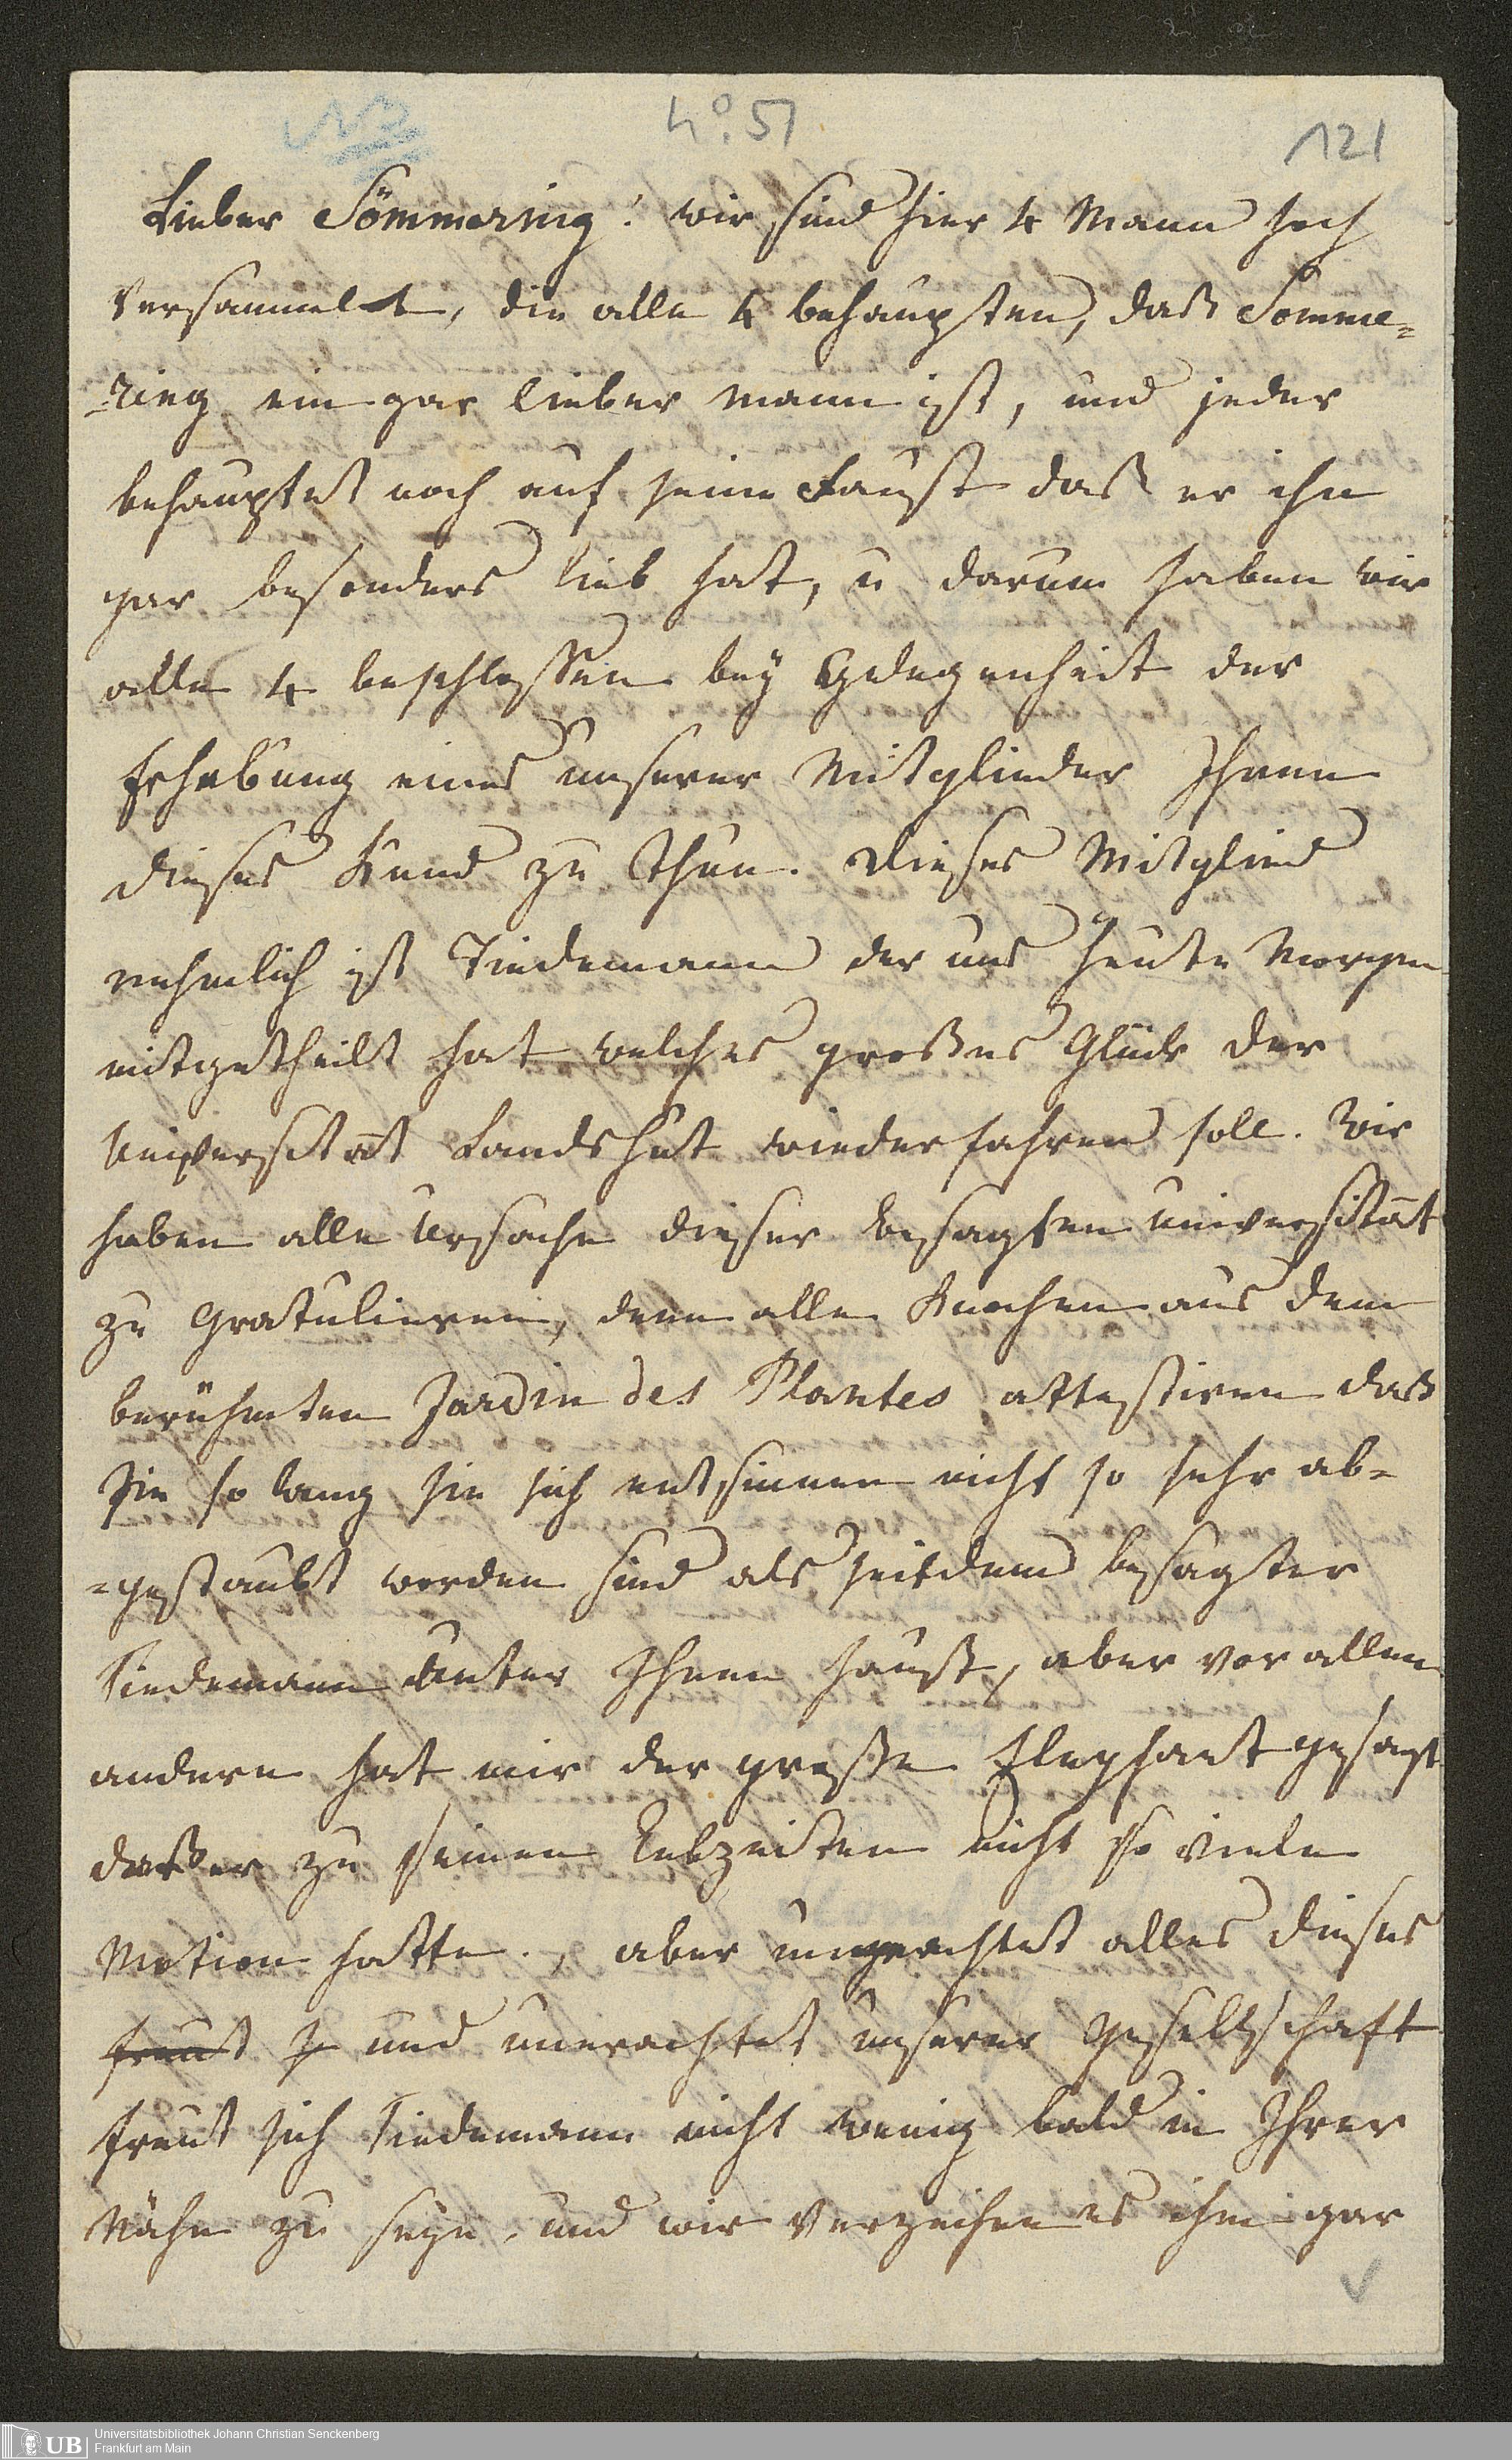 NB
No. 51
121
Lieber Sömmering! wir sind hier 4 Mann hoch
versammelt, die alle 4 behaupten, daß Somme=
=ring ein gar lieber Mann ist, und jeder
behauptet noch auf seine Faust daß er ihn
gar besonders lieb hat, u darum haben wir
alle 4 beschlossen bey Gelegenheit der
Erhebung eines unserer Mitglieder Ihnen
dieses Kund zu thun. Dieses Mitglied
nehmlich ist Tiedemann der uns heute Morgen
mitgetheilt hat welches großes Glück der
Universität Landshut wiederfahren soll. Wir
haben alle Ursache dieser besagten Universität
zu gratulieren, denn alle Knochen aus dem
berühmten Jardin des Plantes attestiren daß
sie so lang sie sich entsinnen nicht so sehr ab=
=gestaubt worden sind als seitdem besagter
Tiedemann unter Ihnen haußt, aber vor allen
andern hat mir der große Elephant gesagt
daß er zu seinen Lebzeiten nicht so viele
Motion hatte., aber ungeachtet alles dieses
freut und unerachtet unserer Gesellschaft
freut sich Tiedemann nicht wenig bald in Ihrer
Nähe zu seyn, und wir verzeihen es ihm gar
UB
Universitätsbibliothek Johann Christian Senckenberg
Frankfurt am Main